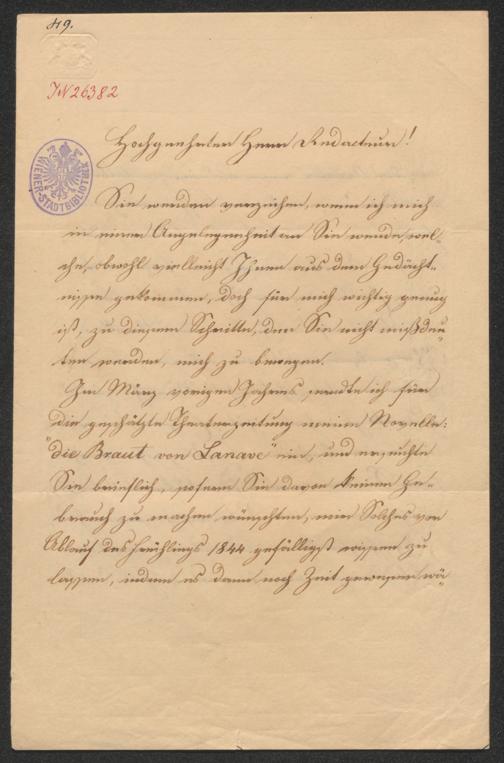 49.
IN 26382
WIENER-STADTBIBLIOTHEK
Hochgeehrter Herr Redacteur!
Sie werden verzeihen, wenn ich mich
in einer Angelegenheit an Sie wende, wel-
che, obwohl vielleicht Ihnen aus dem Gedächt-
nisse gekommen, doch für mich wichtig genug
ist, zu diesem Schritte, den Sie nicht mißdeu-
ten werden, mich zu bewegen.
Im März vorigen Jahres sandte ich für
die geschätzte Theaterzeitung meine Novelle:
"die Braut von Lanave" ein, und ersuchte
Sie brieflich, sofern Sie davon keinen Ge-
brauch zu machen wünschten, mir Solches vor
Ablauf des Frühlings 1844 gefälligst wissen zu
lassen, indem es dann noch Zeit gewesen wä-